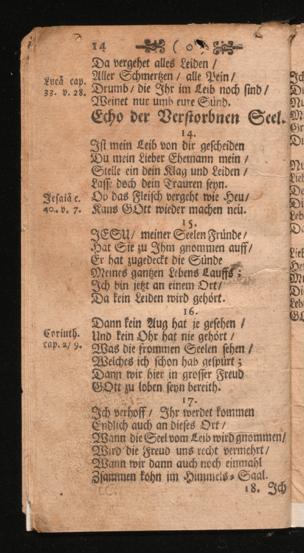 14 ( o )
Da vergehet alles Leiden /
Aller Schmertzen / alle Pein /
Drumb / die Ihr im Leib noch sind /
Weinet nur umb eure Sünd.
Lucä cap.
33. v. 28.
Echo der Verstorbnen Seel.
14.
Ist mein Leib von dir gescheiden
Du mein Lieber Ehemann mein /
Stelle ein dein Klag und Leiden /
Lass doch dein Trauren seyn.
Ob das Fleisch vergeht wie Heu /
Kans GOtt wieder machen neu.
Jesaiä c.
40. v. 7.
15.
JESU / meiner Seelen Fründe /
Hat Sie zu Ihm gnommen auff /
Er hat zugedeckt die Sünde
Meines gantzen Lebens Lauffs ;
Ich bin jetzt an einem Ort /
Da kein Leiden wird gehört.
16.
Dann kein Aug hat je gesehen /
Und kein Ohr hat nie gehört /
Was die frommen Seelen sehen /
Welches ich schon hab gespürt ;
Dann wir hier in grosser Freud
GOtt zu loben seyn bereith.
Corinth.
cap. 2 / 9.
17.
Ich verhoff / Ihr werdet kommen
Endlich auch an dieses Ort /
Wann die Seel vom Leib wird gnommen /
Wird die Freud uns recht vermehrt /
Wann wir dann auch noch einmahl
Zsammen kohn im Himmels-Saal.
18. Ich